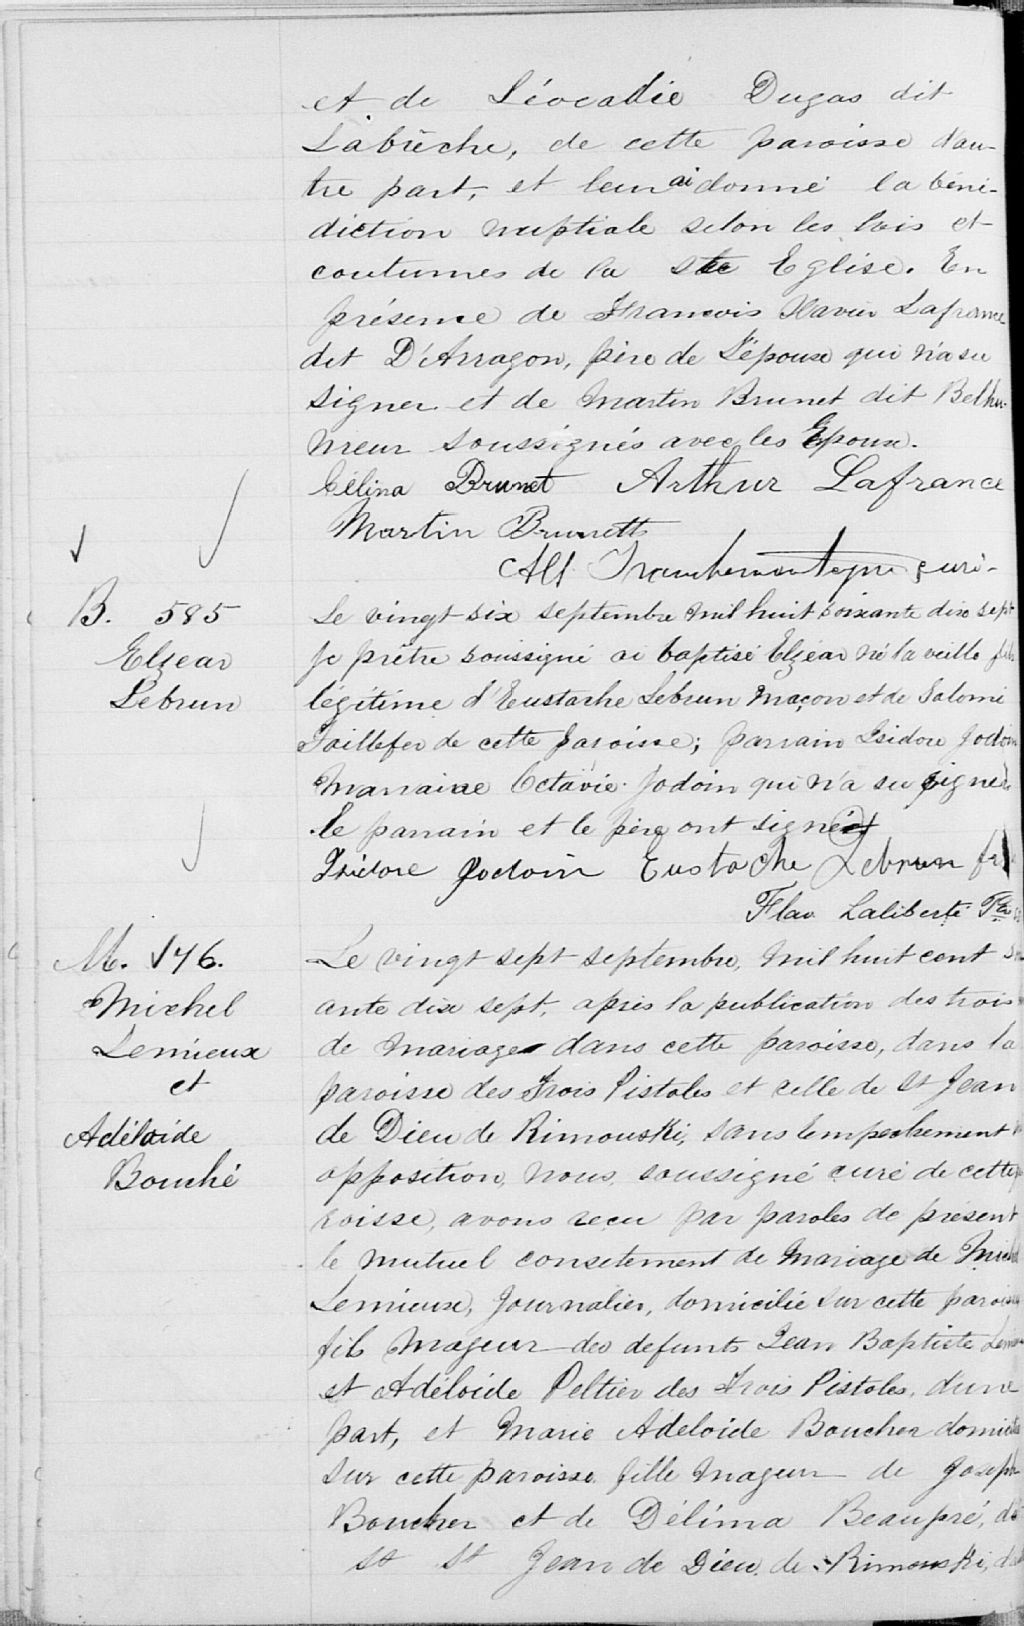 et de Léocadie Dugas dit
Labrèche, de cette paroisse d'au-
tre part, et leur ai donné la béné-
diction nuptiale selon les lois et
coutumes de la Ste Eglise. En
présence de Francois Xavier Lafrance
dit D'Arragon, père de l'épouse qui n'a su
signer et de Martin Brunet dit Belhu-
meur soussignés avec les Epoux.
Célina Brunet Arthur Lafrance
Martin Brunette
Alf Tranchemontagne curé-
B. 585
Elzear
Lebrun
Le vingt six septembre mil huit soixante dix sept
je prêtre soussigné ai baptisé Elzéar né la veille fils
légitime d'Eustache Lebrun maçon et de Salomé
Taillefer de cette paroisse; parrain Isidore Jodoin
Marraine Octavie Jodoin qui n'a su signer
le parrain et le père ont signé
Isidore Jodoin Eustache Lebrun
Flav. Laliberté Ptre
M. 176.
Michel
Lemieux
et
Adélaide
Bouché
Le vingt sept septembre, mil huit cent
ante dix sept, après la publication des trois
de mariage dans cette paroisse, dans la
paroisse des Trois Pistoles et celle de St Jean
de Dieu de Rimouski, sans empechement
opposition, nous, soussigné curé de cette
roisse, avons recu par paroles de présent
le mutuel consetement de mariage de Michel
Lemieux, Journalier, domicilié sur cette paroisse
fils majeur des defunts Jean Baptiste
et Adélaide Peltier des Trois Pistoles, d'une
part, et Marie Adelaide Boucher
sur cette paroisse fille mageur de Joseph
Boucher et de Délima Beaupré, de
St St Jean de Dieu de Rimouski,